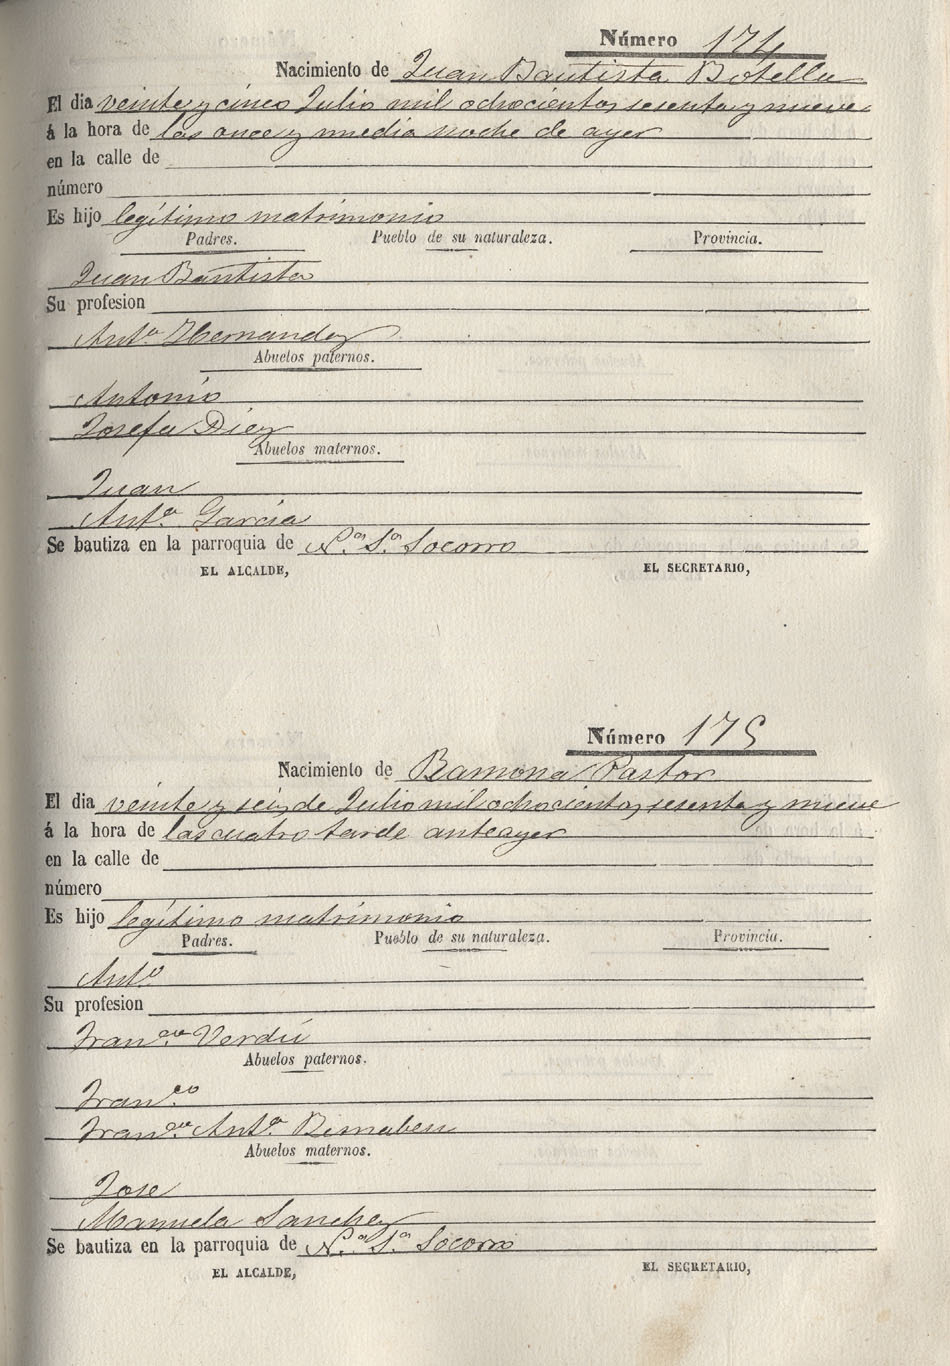 Número 174
Nacimiento de Juan Bautista Botella
El dia veinte y cinco Julio mil ochocientos sesenta y nueve
á la hora de las once y media noche de ayer
en la calle de
número
Es hijo legítimo matrimonio
Padres. Pueblo de su naturaleza. Provincia.
Juan Bautista
Su profesion
Antª Hernandez
Abuelos paternos.
Antonio
Josefa Diez
Abuelos maternos.
Juan
Antª García
Se bautiza en la parroquia de Nª Sª Socorro
EL ALCALDE, EL SECRETARIO,
Número 175
Nacimiento de Ramona Pastor
El dia veinte y seis de Julio mil ochocientos sesenta y nueve
á la hora de las cuatro tarde anteayer
en la calle de
número
Es hijo legítimo matrimonio
Padres. Pueblo de su naturaleza. Provincia.
Antº
Su profesion
Franca Verdú
Abuelos paternos.
Franco
Franca Antª
Abuelos maternos.
Jose
Manuela Sanchez
Se bautiza en la parroquia de Nª Sª Socorro
EL ALCALDE, EL SECRETARIO,